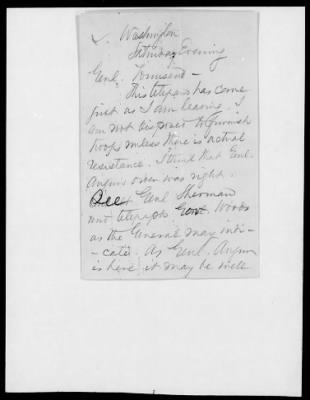 Washington
Saturday Evening
Genl. Townsend -
This telegram has come
just as I am leaving. I
am not disposed to furnish
troops unless there is actual
resistance. I think that Genl.
Augurs order was right.
See Genl Sherman
and telegraph Gov. Woods
as the General may indi-
- cate. As Genl. Augur
is here it may be well